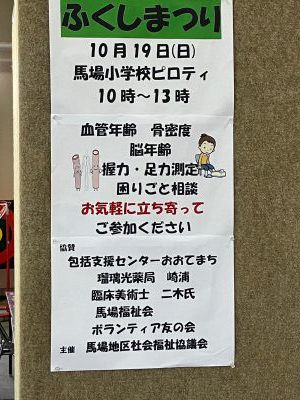 ふくしまつり
10月19日(日)
馬場小学校ピロティ
10時～13時
血管年齢 骨密度
脳年齢
握力・足力測定
困りごと相談
お気軽に立ち寄って
ご参加ください
協賛
包括支援センターおおてまち
瑠璃光薬局 崎浦
臨床美術士 二木氏
馬場福祉会
ボランティア友の会
主催 馬場地区社会福祉協議会